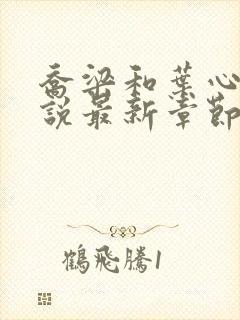 喬梁和葉心
說最新章節
鶴飛騰1